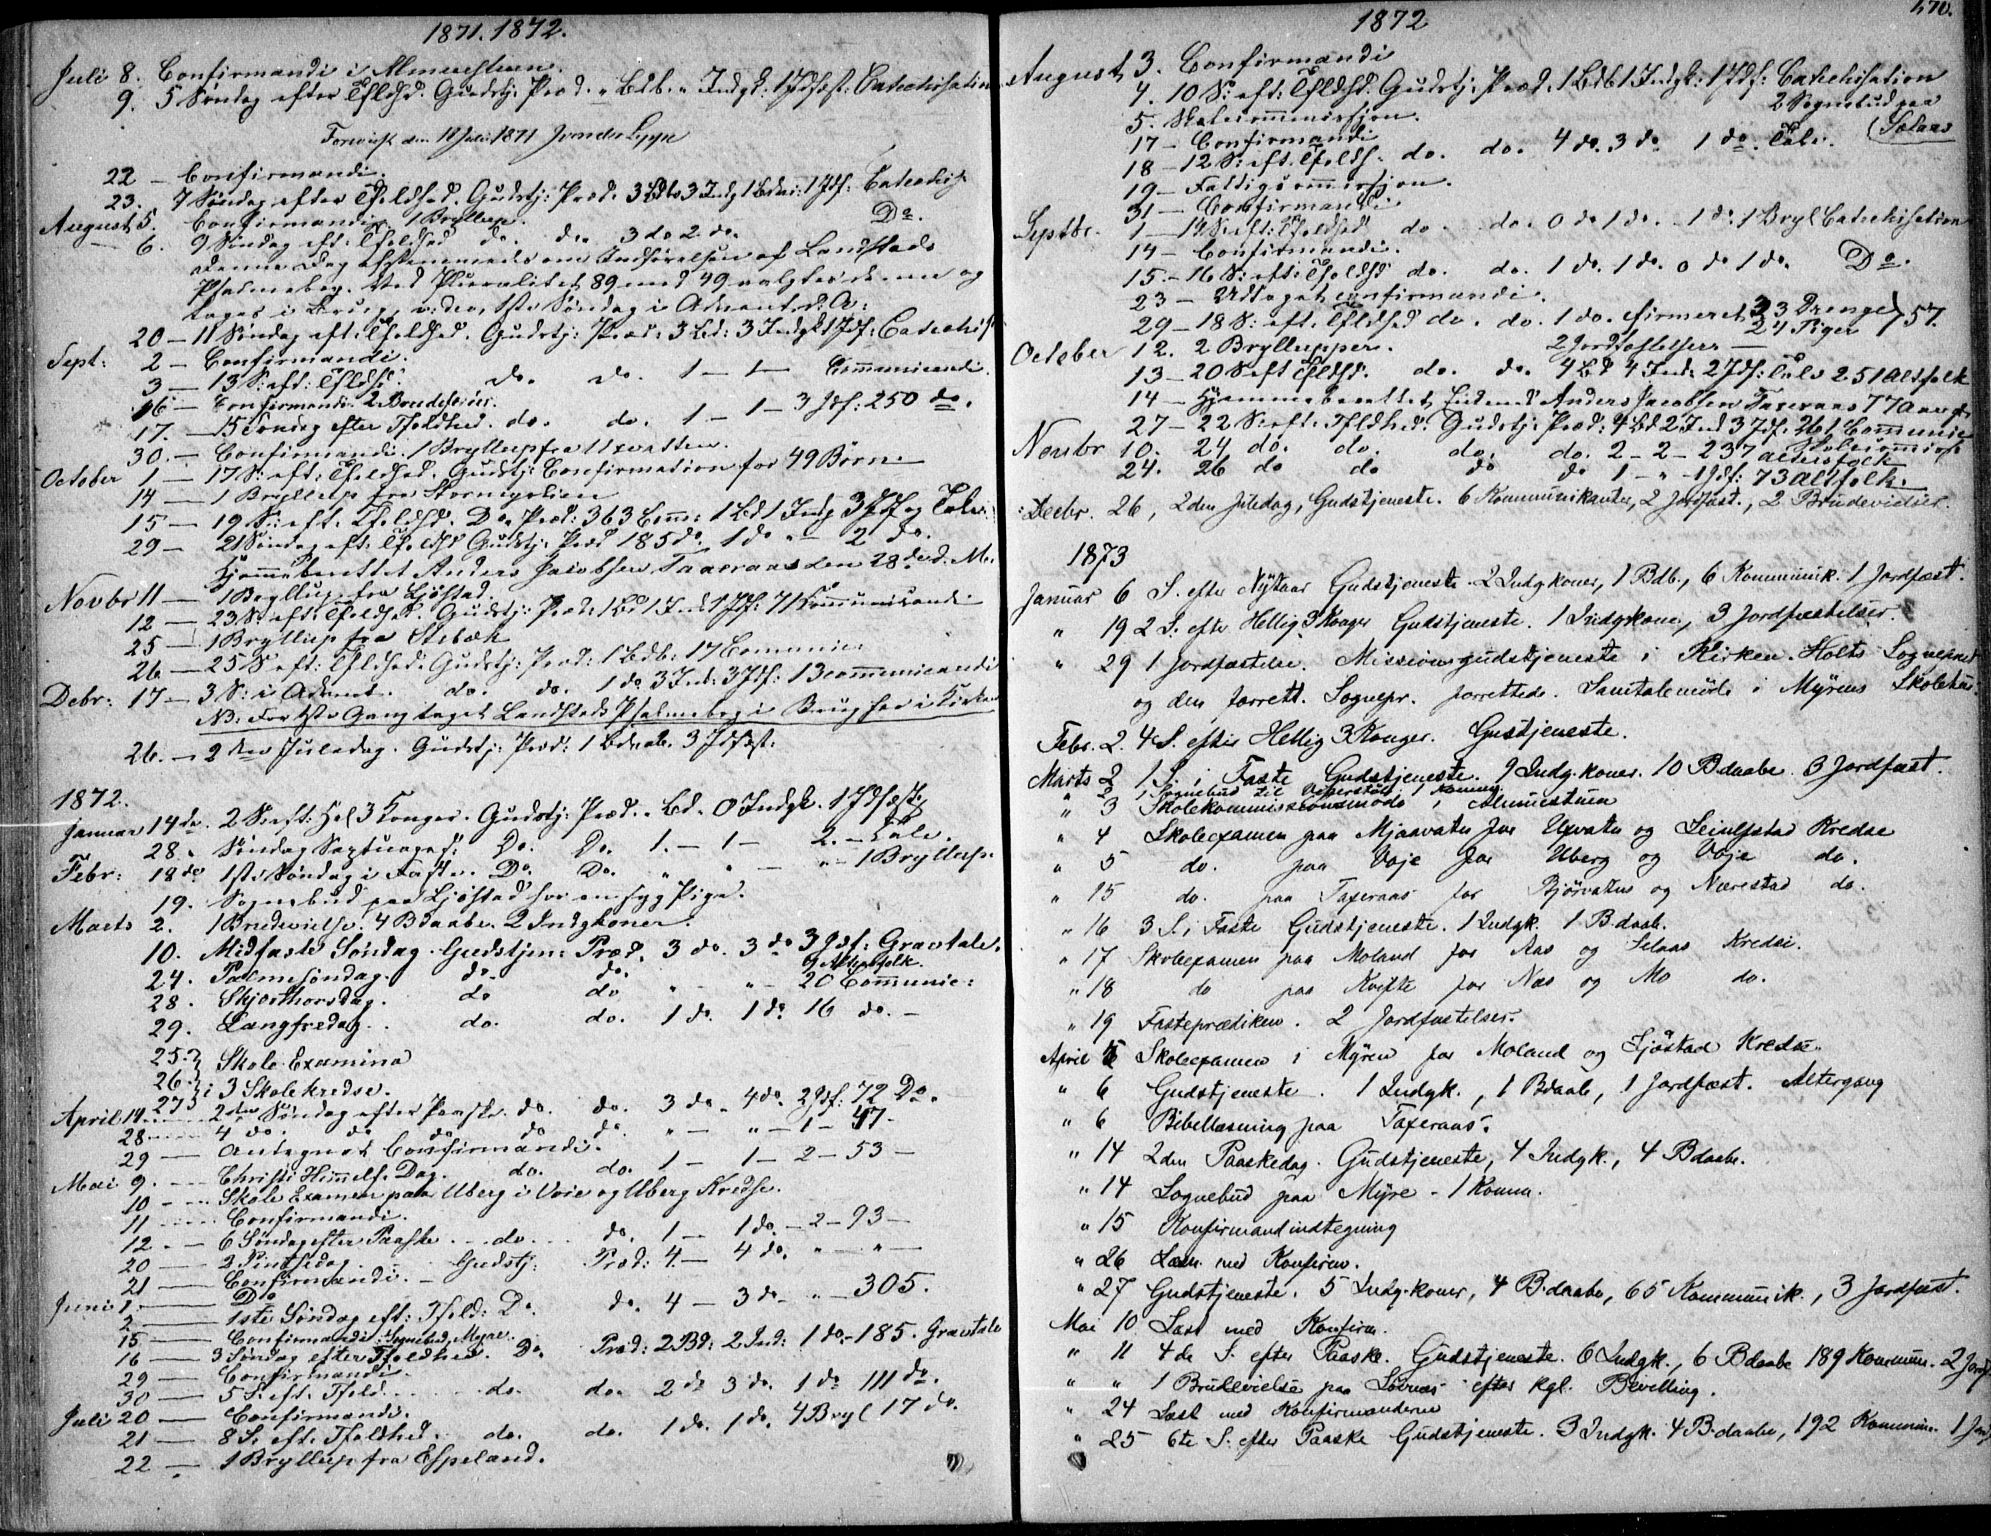 1871. 1872.
Juli 8. Confirmandi i Almuestuen.
9. 5 Søndag efter Tfldhd. Gudstj: Præd. " Bdb. " Indgk: 1 Jdfæst: Catechisation
Forevist den 18 Juli 1871
22 — Confirmandi.
23. 7 Søndag efter Tfoldhed. Gudstj: Præd: 3 Bdb 3 Indg 1 Jdf: Catechis
August 5. Confirmandi, 1 Bryllup.
6. 9 Søndag eft: Tfoldhed do. do. 3 do 2 do. Do.
Denne Dag afstemmedes om Indførelsen af Landstads
Psalmebog. Ved Pluralitet 89 mod 49 valgtes denne og
tages i Brug, v: den 1ste Søndag i Advent d: A:
20 — 11 Søndag eft: Tfoldhed. Gudstj: Præd: 3 Bd: 3 Indgk 1 Jdf: Catechis
Sept: 2 — Confirmandi.
3 — 13 S: eft: Tfldhd: do. do. 1 — 1 — Communicandi.
16 — Confirmandi. 2 Brudevielser.
17. — 15 Søndag efter Tfoldhed. do. do. 1 — 1 — 3 Jdf: 250 do.
30. — Confirmandi. 1 Bryllup fra Uxvatten.
October 1 — 17 S: eft: Tfoldhed. Gudstj: Confirmation for 49 Børn
14 — 1 Bryllup fra
15 — 19 S: eft. Tfoldhd. Do. Præd: 363 Comm: 1 Bd 1 Indg 3 Jdf og Tale.
29 — 21 Søndag eft: Tfoldhd Gudstj: Præd 185 do. 1 do " — 2 do.
Hjemmeberettet Anders Jacobsen Taxeraas den 28de d. M.
Novbr 11 — 1 Bryllup fra Ljøstad.
12 — 23 S: eft: Tfoldhed. Gudstj: Præd: 1 Bd 1 Ind 1 Jdf: 71 Kommunicandi
25 — 1 Bryllup fra Stebæk
26 — 25 S: eft: Tfldhd: Gudstj: Præd: 1 Bdb: 17 Communic:
Debr: 17 — 3 S: i Advent. do. do. 1 do 3 Ind: 3 Jdf: 13 communicandi
NB: For 1ste Gang taget Landstads Psalmebog i Brug her i Kirken
26. — 2den Juledag. Gudstj: Præd: 1 Bdaab. 3 Jdfæst:
1872.
Januar 14de. 2 S: eft: Hel 3 Konger. Gudstj: Præd. " Bd. 0 Indgk. 1 Jdfæst.
28. Søndag Septuages: Do. Do. 1. — 1 — 2. — Tale.
Febr: 18de 1ste Søndag i Faste. Do. Do. " " — " — 1 Bryllup.
19. Sognebud paa Ljøstad hos en syg Pige.
Marts 2. 1 Brudevielse. 4 Bdaabe. 2 Indgkoner.
10. Midfaste Søndag. Gudstjen: Præd. 3 do. 3 do 3 Jdf: Gravtale.
24. Palmesøndag. do. do.
28. Skjærthorsdag. do do " — " — 20 Communic:
29. Langfredag. do. do. 1 do. 1 do 16 do. —
25. } Skole Examina
26. } i 3 Skolekredse.
27 }
April 14. 2den Søndag efter Paaske. do. do. 3 do. 4 do. 2 Jdf: 72 Do.
28 4 do. do do do do. " — " — 1 — 47.
29 — Antegnet Confirmandi.
Mai 9. — Christi Himmelf. Dag. do. do. 1 — 1 — 2 — 53 —
10 — Skole Examen paa Uberg i Voie og Uberg Kredse.
11 Confirmandi.
12. — 6 Søndag efter Paaske do. do. 1 — 1 do. — 2 — 93 —
20 — 2 Pintsedag Gudstj: Præd: 4. — 4 do. " — " —
21 — Confirmandi. —
Juni 1. — Do
2 — 1ste Søndag eft: Tfold: Do. do. 4 — 3 do — " — 305.
15 — Confirmandi: Sognebud, Myre.
16 — 3 Søndag efter Tfoldhed. Do. Præd: 2 Bd: 2 Ind: 1 do. — 185. Gravtale
29 — Confirmandi.
30 — 5 S: eft. Tfold. do. do. 2 do 3 do. 1 do 111 do.
Juli 20 — Confirmandi.
21 — 8 S. eft. Tfoldhed. do. do. 1 do. 1 do. 4 Bryl 17 do.
22 — 1 Bryllup fra Espeland.
1872
August 3. Confirmandi
4. 10 S: eft: Tfldhd: Gudstj: Præd. 1 Bdb 1 Indgk: 1 Jdf: Catechisation
5. Skolecommission. 2 Sognebud paa
17 — Confirmandi (Selaas
18 — 12 S: eft. Tfoldh. do. do. 4 do. 3 do 1 do. Tale.
19 — Fattigcommission.
31 — Confirmandi
Septbr. 1 — 14 S: eft: Tfoldhed do. do. 0 do 1 do. 1 do. 1 Bryl Catechisation
14 — Confirmandi.
15. — 16 S: eft: Tfoldhd do. do. 1 do. 1 do. 0 do 1 do. Do.
23 — Udtaget confirmandi.
29 — 18 S: eft. Tfldhed do. do. 1 do. cfirmeret 33 Drenge } 57.
24 Piger
October 12. 2 Bryllupper. 2 Jordfæstelser —
13 — 20 S eft Tfldhd. do. do. 4 Bd 4 Ind: 2 Jdf: Tale 251 Altfolk
14 — Hjemmeberettet Anders Jacobsen Taxeraas 77 Aar gl
27 — 22 S: eft. Tfldhed: Gudstj: Præd: 4 Bd 2 Ind 3 Jdf. 261 Communic
Novbr 10. 24 do. do. do. do. 2 — 2 — 237 Altersfolk
24. 26 do do do do 1 — " — 1 Jdf: 73 Altfolk.
Decbr. 26, 2den Juledag, Gudstjeneste. 6 Kommunikanter, 2 Jordfæst., 2 Brudevielser.
1873
Januar 6 S. efter Nytaar Gudstjeneste. 2 Indgkoner, 1 Bdb., 6 Kommunik. 1 Jordfæst.
" 19 2 S. efter Hellig 3 Konger Gudstjeneste. 1 Indgkone, 3 Jordfæstelser.
" 29 1 Jordfæstelse. Missionsgudstjeneste i Kirken. Holts Sognepræst
og den forrett. Sognepr. forrettede. Samtalemøde i Myrens Skolehus.
Febr. 2. 4 S. efter Hellig 3 Konger. Gustjeneste.
Marts 2 1 S. i Faste Gudstjeneste. 9 Indg.koner. 10 Bdaabe. 3 Jordfæst.
" 2 1 Sognebud til 1 Kommu.
" 3 Skolekommissionsmøde i Almuestuen
" 4 Skoleexamen paa Mjaavatn for Uxvatn og Seiulfstad Kredse
" 5 do. paa Voje for Uberg og Voje do.
" 15 do. paa Taxeraas for Bjørvatn og Nærestad do.
" 16 3 S. i Faste Gudstjeneste. 1 Indgk. 1 Bdaab.
" 17 Skoleexamen paa Moland for Aas og Selaas Kredse.
" 18 do paa Kvifte for Næs og Mo do.
" 19 Fasteprædiken. 2 Jordfæstelser.
April 5 Skoleexamen i Myren for Moland og Ljøstad Kredse.
" 6 Gudstjeneste. 1 Indgk., 1 Bdaab, 1 Jordfæst. Altergang
" 6 Bibellæsning paa Taxeraas.
" 14 2den Paaskedag. Gudstjeneste, 4 Indgk., 4 Bdaabe.
" 14 Sognebud paa Myre - 1 Komm.
" 15 Konfirmandindtegning
" 26 Læsn. med Konfirm.
" 27 Gudstjeneste. 5 Indg.koner, 4 B.daabe, 65 Kommunik., 3 Jordfæst.
Mai 10 Læst med Konfirm.
" 11 4de S. efter Paaske. Gudstjeneste. 6 Indgk., 6 Bdaabe 189 Kommun. 2 Jordf
" " 1 Brudevielse paa efter kgl. Bevilling.
" 24 Læst med Konfirmanderne
" 25 6te S. efter Paaske Gudstjeneste. 3 Indgk. 4 B.daabe, 192 Kommun. 1 Jord